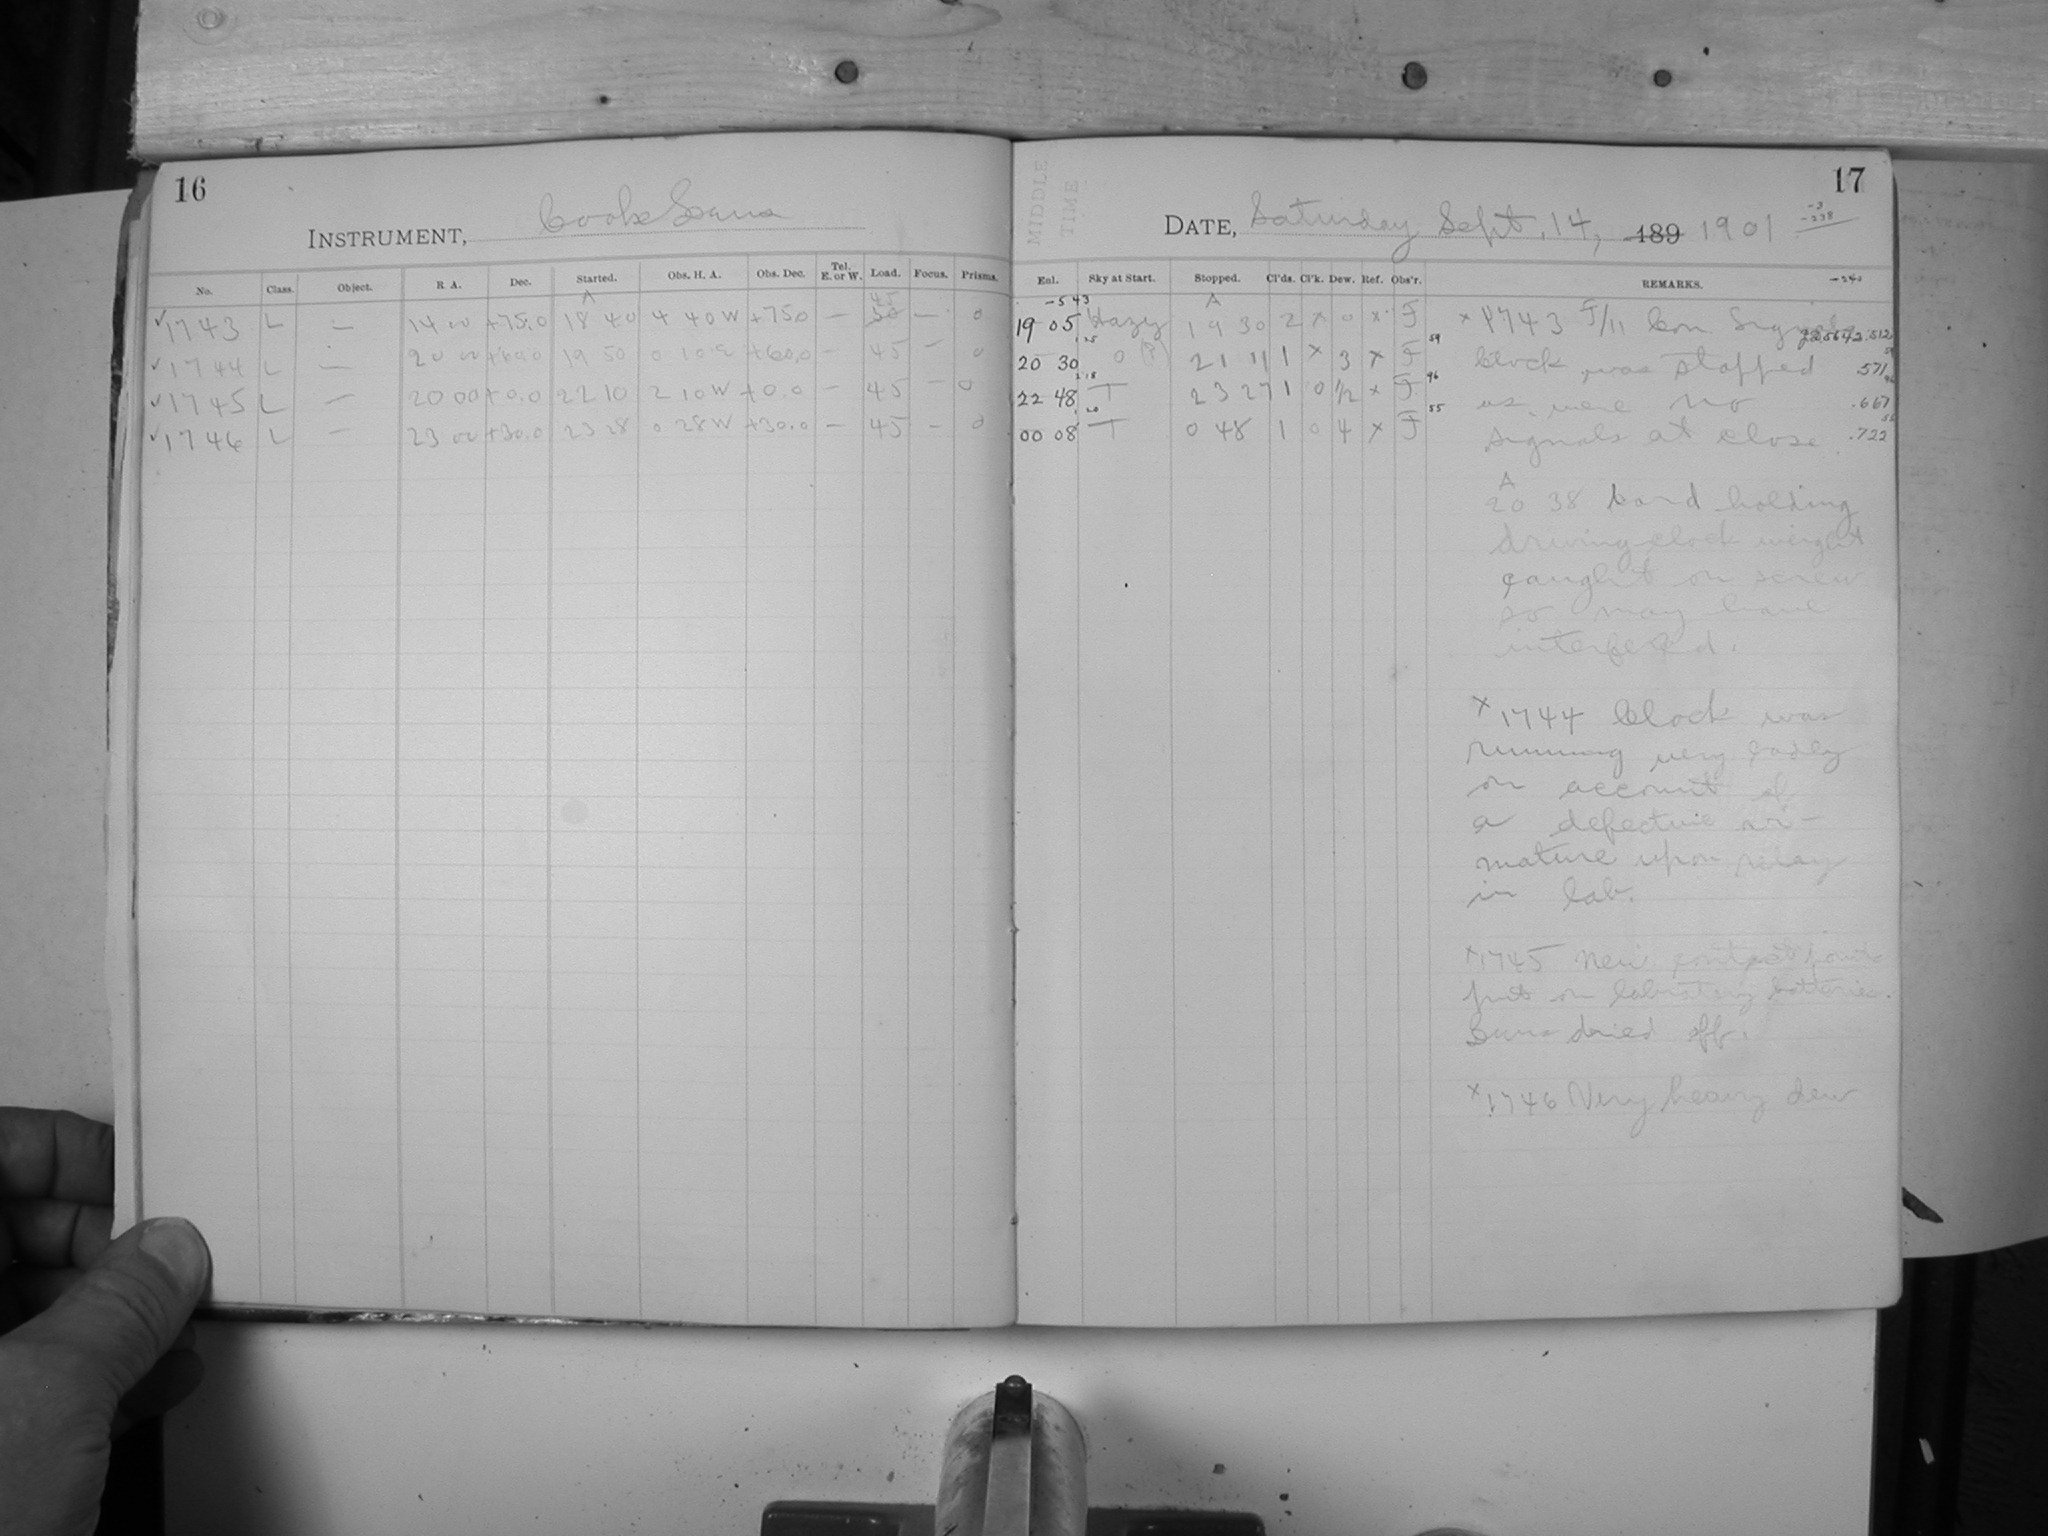 16
INSTRUMENT, Cooke Lens
No. Class. Object. R. A. Dec. Started. Obs. H. A. Obs. Dec. Tel. E. or W. Load. Focus. Prisms.
A 45
✓1743 L — 14 00 +75.0 18 40 4 40 W +75.0 — 30 — 0
✓1744 L — 20 00 +60.0 19 50 0 10 E +60.0 — 45 — 0
✓1745 L — 20 00 +0.0 22 10 2 10 W +0.0 — 45 — 0
✓1746 L — 23 00 +30.0 23 28 0 28 W +30.0 — 45 — 0
17
MIDDLE
TIME
DATE, Saturday Sept. 14, 189 1901
-3
-238
-240
Enl. Sky at Start. Stopped. Cl'ds. Cl'k. Dew. Ref. Obs'r. REMARKS.
-5 43 A
19 05 Hazy 19 30 2 × 0 × J
20 30 0 (?) 21 11 1 × 3 × J 59
22 48 T 23 27 1 0 1/2 × J 96
00 08 T 0 48 1 0 4 × J 55
× 1743 J/11 Con Signals
.512
Clock was stopped .571
as were no .667
signals at close .722
A
20 38 Cord holding
driving clock weight
caught on screw
so may have
interfered.
× 1744 Clock was
running very badly
on account of
a defective ar-
mature upon relay
in lab.
× 1745 New
put on laboratory batteries.
Lens dried off.
× 1746 Very heavy dew